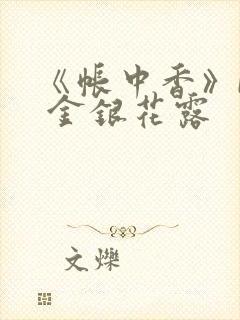 《帐中香》
金银花露
文爍